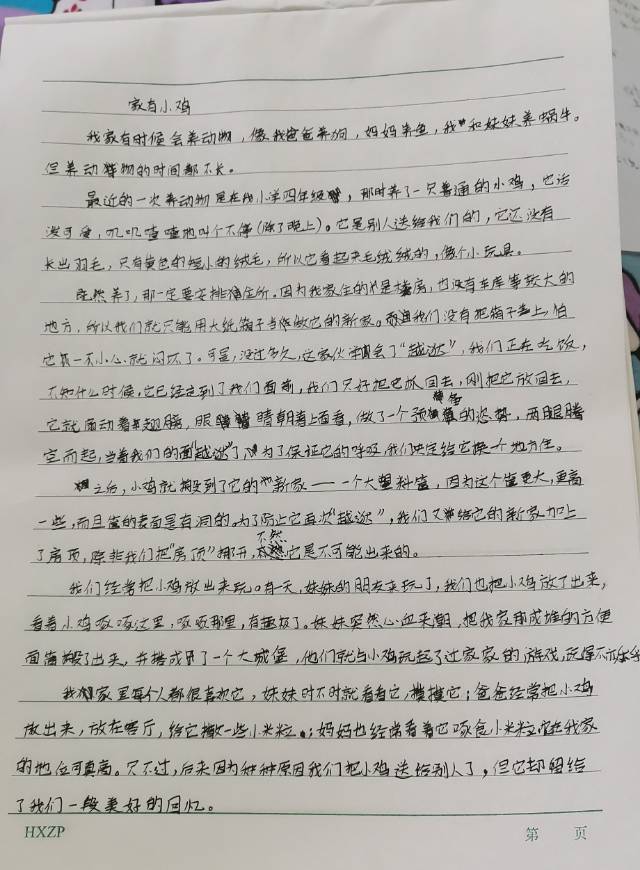 家有小鸡
我家有时候会养动物，像我爸爸养狗，妈妈养鱼，我和妹妹养蜗牛。
但养动物的时间都不长。
最近的一次养动物是在我小学四年级，那时养了一只普通的小鸡，它活
泼可爱，叽叽喳喳地叫个不停(除了晚上)。它是别人送给我们的，它还没有
长出羽毛，只有黄色的短小的绒毛，所以它看起来毛绒绒的，像个小玩具。
既然养了，那一定要安排住所。因为我家住的是楼房，也没有车库等较大的
地方，所以我们就只能用大纸箱子当做它的新家。而且我们没有把箱子盖上，怕
它一不小心就闷坏了。可是，没过多久，这家伙学会了“越狱”，我们正在吃饭，
不知什么时候，它已经走到了我们面前，我们只好把它抓回去，刚把它放回去，
它就扇动着翅膀，眼睛朝着上面看，做了一个预备的姿势，两腿腾
空而起，当着我们的面“越狱”了，为了保证它的呼吸，我们决定给它换个地方住。
之后，小鸡就搬到了它的新家——一个大塑料筐，因为这个筐更大，更高
一些，而且筐的表面是有洞的。为了防止它再次“越狱”，我们又给它的新家加上
了房顶，除非我们把“房顶”挪开，不然它是不可能出来的。
我们经常把小鸡放出来玩。有一天，妹妹的朋友来玩了，我们也把小鸡放了出来，
看着小鸡啄啄这里，啄啄那里，有趣极了。妹妹突然心血来潮，把我家那成堆的方便
面箱搬了出来，并搭成了一个大城堡，他们就与小鸡玩起了过家家的游戏，玩得不亦乐乎
我家里每个人都很喜欢它，妹妹时不时就看看它，摸摸它；爸爸经常把小鸡
放出来，放在客厅，给它撒一些小米粒；妈妈也经常看着它啄食小米粒，它在我家
的地位可真高。只不过，后来因为种种原因我们把小鸡送给别人了，但它却留给
了我们一段美好的回忆。
HXZP
第 页